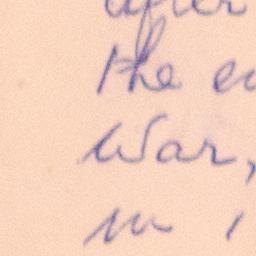 after
the
War,
in